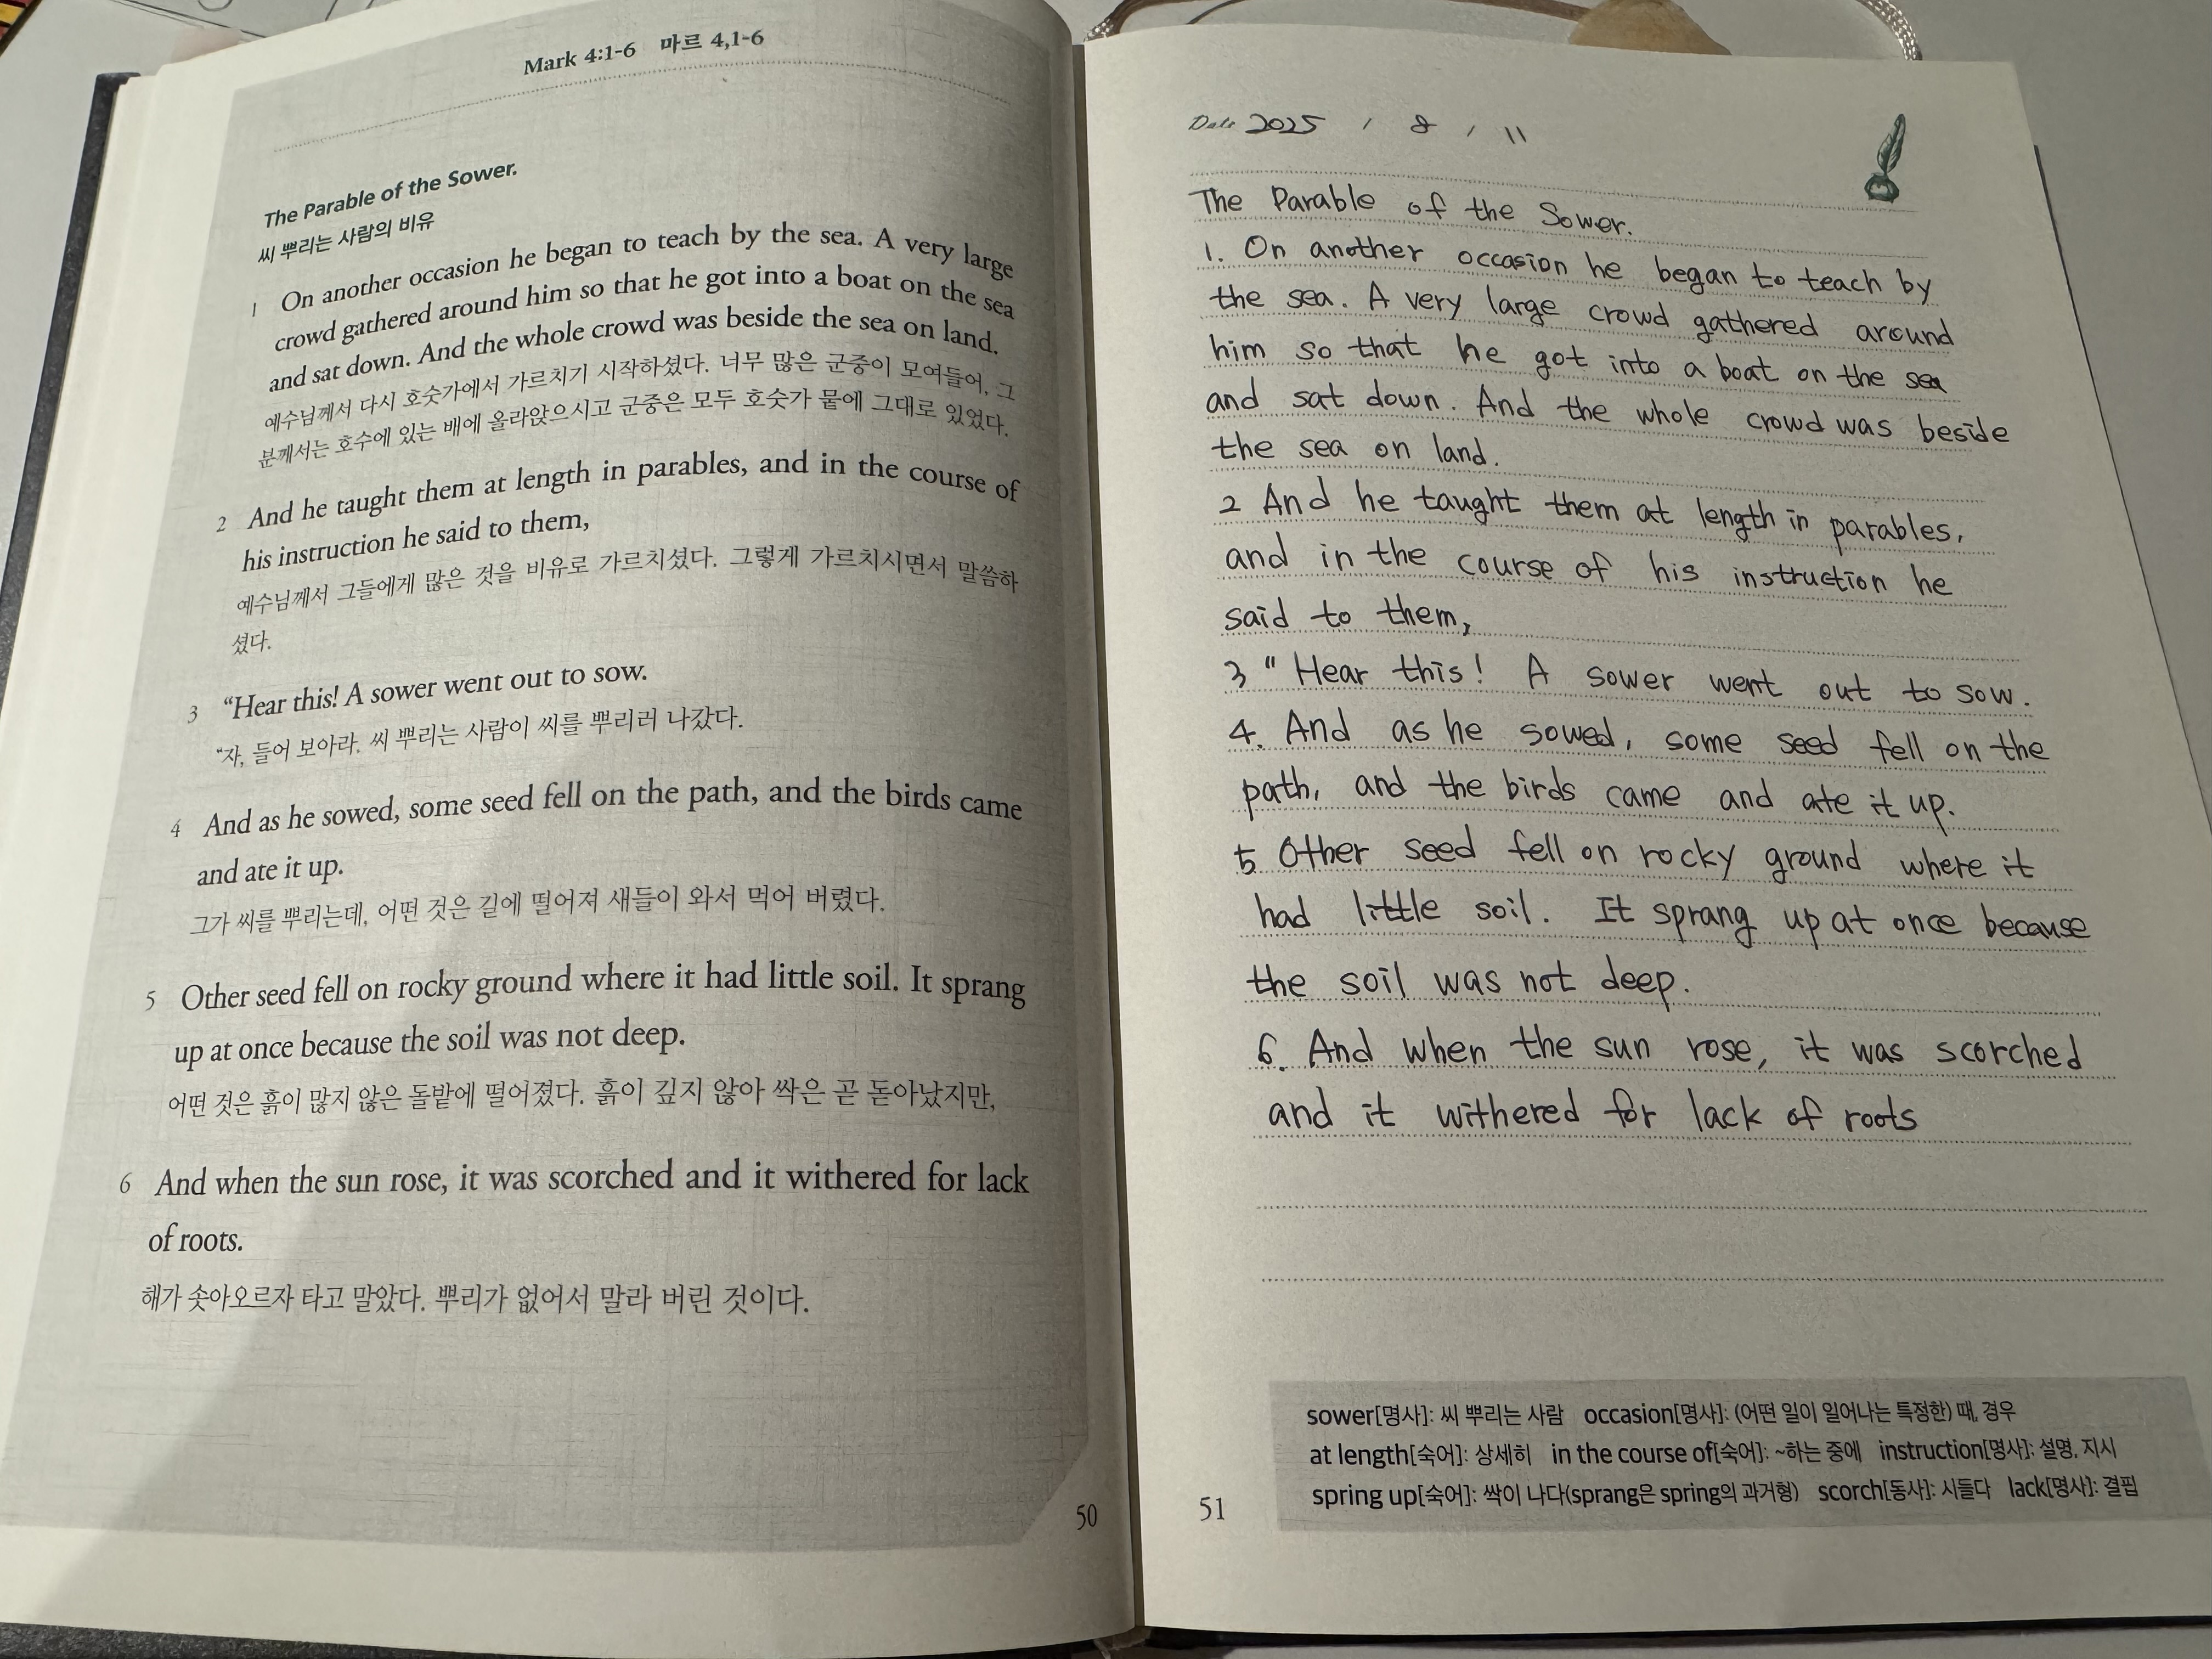 Mark 4:1-6 마르 4,1-6
The Parable of the Sower.
씨 뿌리는 사람의 비유
1 On another occasion he began to teach by the sea. A very large
crowd gathered around him so that he got into a boat on the sea
and sat down. And the whole crowd was beside the sea on land.
예수님께서 다시 호숫가에서 가르치기 시작하셨다. 너무 많은 군중이 모여들어, 그
분께서는 호수에 있는 배에 올라앉으시고 군중은 모두 호숫가 뭍에 그대로 있었다.
2 And he taught them at length in parables, and in the course of
his instruction he said to them,
예수님께서 그들에게 많은 것을 비유로 가르치셨다. 그렇게 가르치시면서 말씀하
셨다.
3 “Hear this! A sower went out to sow.
“자, 들어 보아라. 씨 뿌리는 사람이 씨를 뿌리러 나갔다.
4 And as he sowed, some seed fell on the path, and the birds came
and ate it up.
그가 씨를 뿌리는데, 어떤 것은 길에 떨어져 새들이 와서 먹어 버렸다.
5 Other seed fell on rocky ground where it had little soil. It sprang
up at once because the soil was not deep.
어떤 것은 흙이 많지 않은 돌밭에 떨어졌다. 흙이 깊지 않아 싹은 곧 돋아났지만,
6 And when the sun rose, it was scorched and it withered for lack
of roots.
해가 솟아오르자 타고 말았다. 뿌리가 없어서 말라 버린 것이다.
50
Date 2025 / 8 / 11
The Parable of the Sower.
1. On another occasion he began to teach by
the sea. A very large crowd gathered around
him so that he got into a boat on the sea
and sat down. And the whole crowd was beside
the sea on land.
2 And he taught them at length in parables,
and in the course of his instruction he
said to them,
3 "Hear this! A sower went out to sow.
4. And as he sowed, some seed fell on the
path, and the birds came and ate it up.
5 Other seed fell on rocky ground where it
had little soil. It sprang up at once because
the soil was not deep.
6. And when the sun rose, it was scorched
and it withered for lack of roots
sower[명사]: 씨 뿌리는 사람 occasion[명사]: (어떤 일이 일어나는 특정한) 때, 경우
at length[숙어]: 상세히 in the course of[숙어]: ~하는 중에 instruction[명사]: 설명, 지시
spring up[숙어]: 싹이 나다(sprang은 spring의 과거형) scorch[동사]: 시들다 lack[명사]: 결핍
51